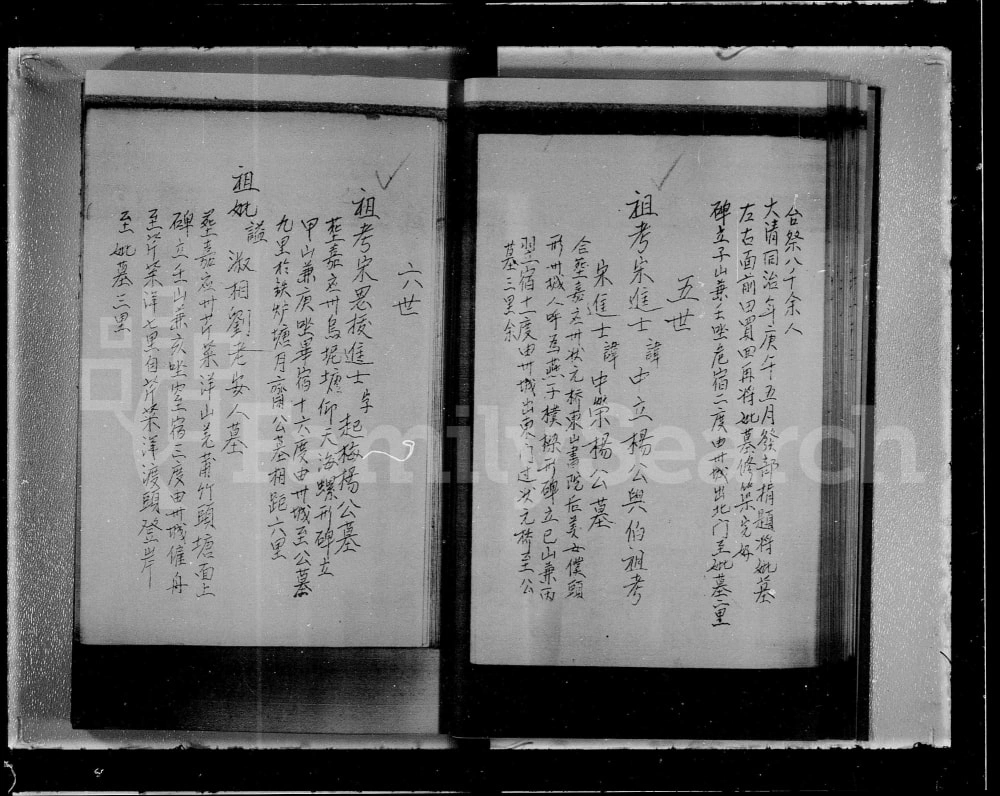 台祭八千余人
大清同治年庚午五月發部捐題将妣墓
左右面前田買回再将妣墓修築完好
碑立子山兼壬坐危宿二度由卅城出北门至妣墓二里
五世
祖考宋進士諱中立楊公與伯祖考
宋進士諱中榮楊公墓
仝塟嘉应卅状元桥東山書院后美女僕頭
形卅城人呼為燕子樸樑形碑立巳山兼丙
翌宿十一度由卅城出東门过状元桥至公
墓三里余
六世
祖考宋恩授進士字起梅楊公墓
塟嘉应卅烏坭塘仰天海螺形碑立
甲山兼庚坐畢宿十六度由卅城至公墓
九里於鉄炉塘月齋公墓相距六里
祖妣謚淑相劉老安人墓
塟嘉应卅芹菜洋山羌莆竹頭塘面上
碑立壬山兼亥坐室宿三度由卅城催舟
至芹菜洋七里自芹菜洋渡頭登岸
至妣墓三里
FamilySearch